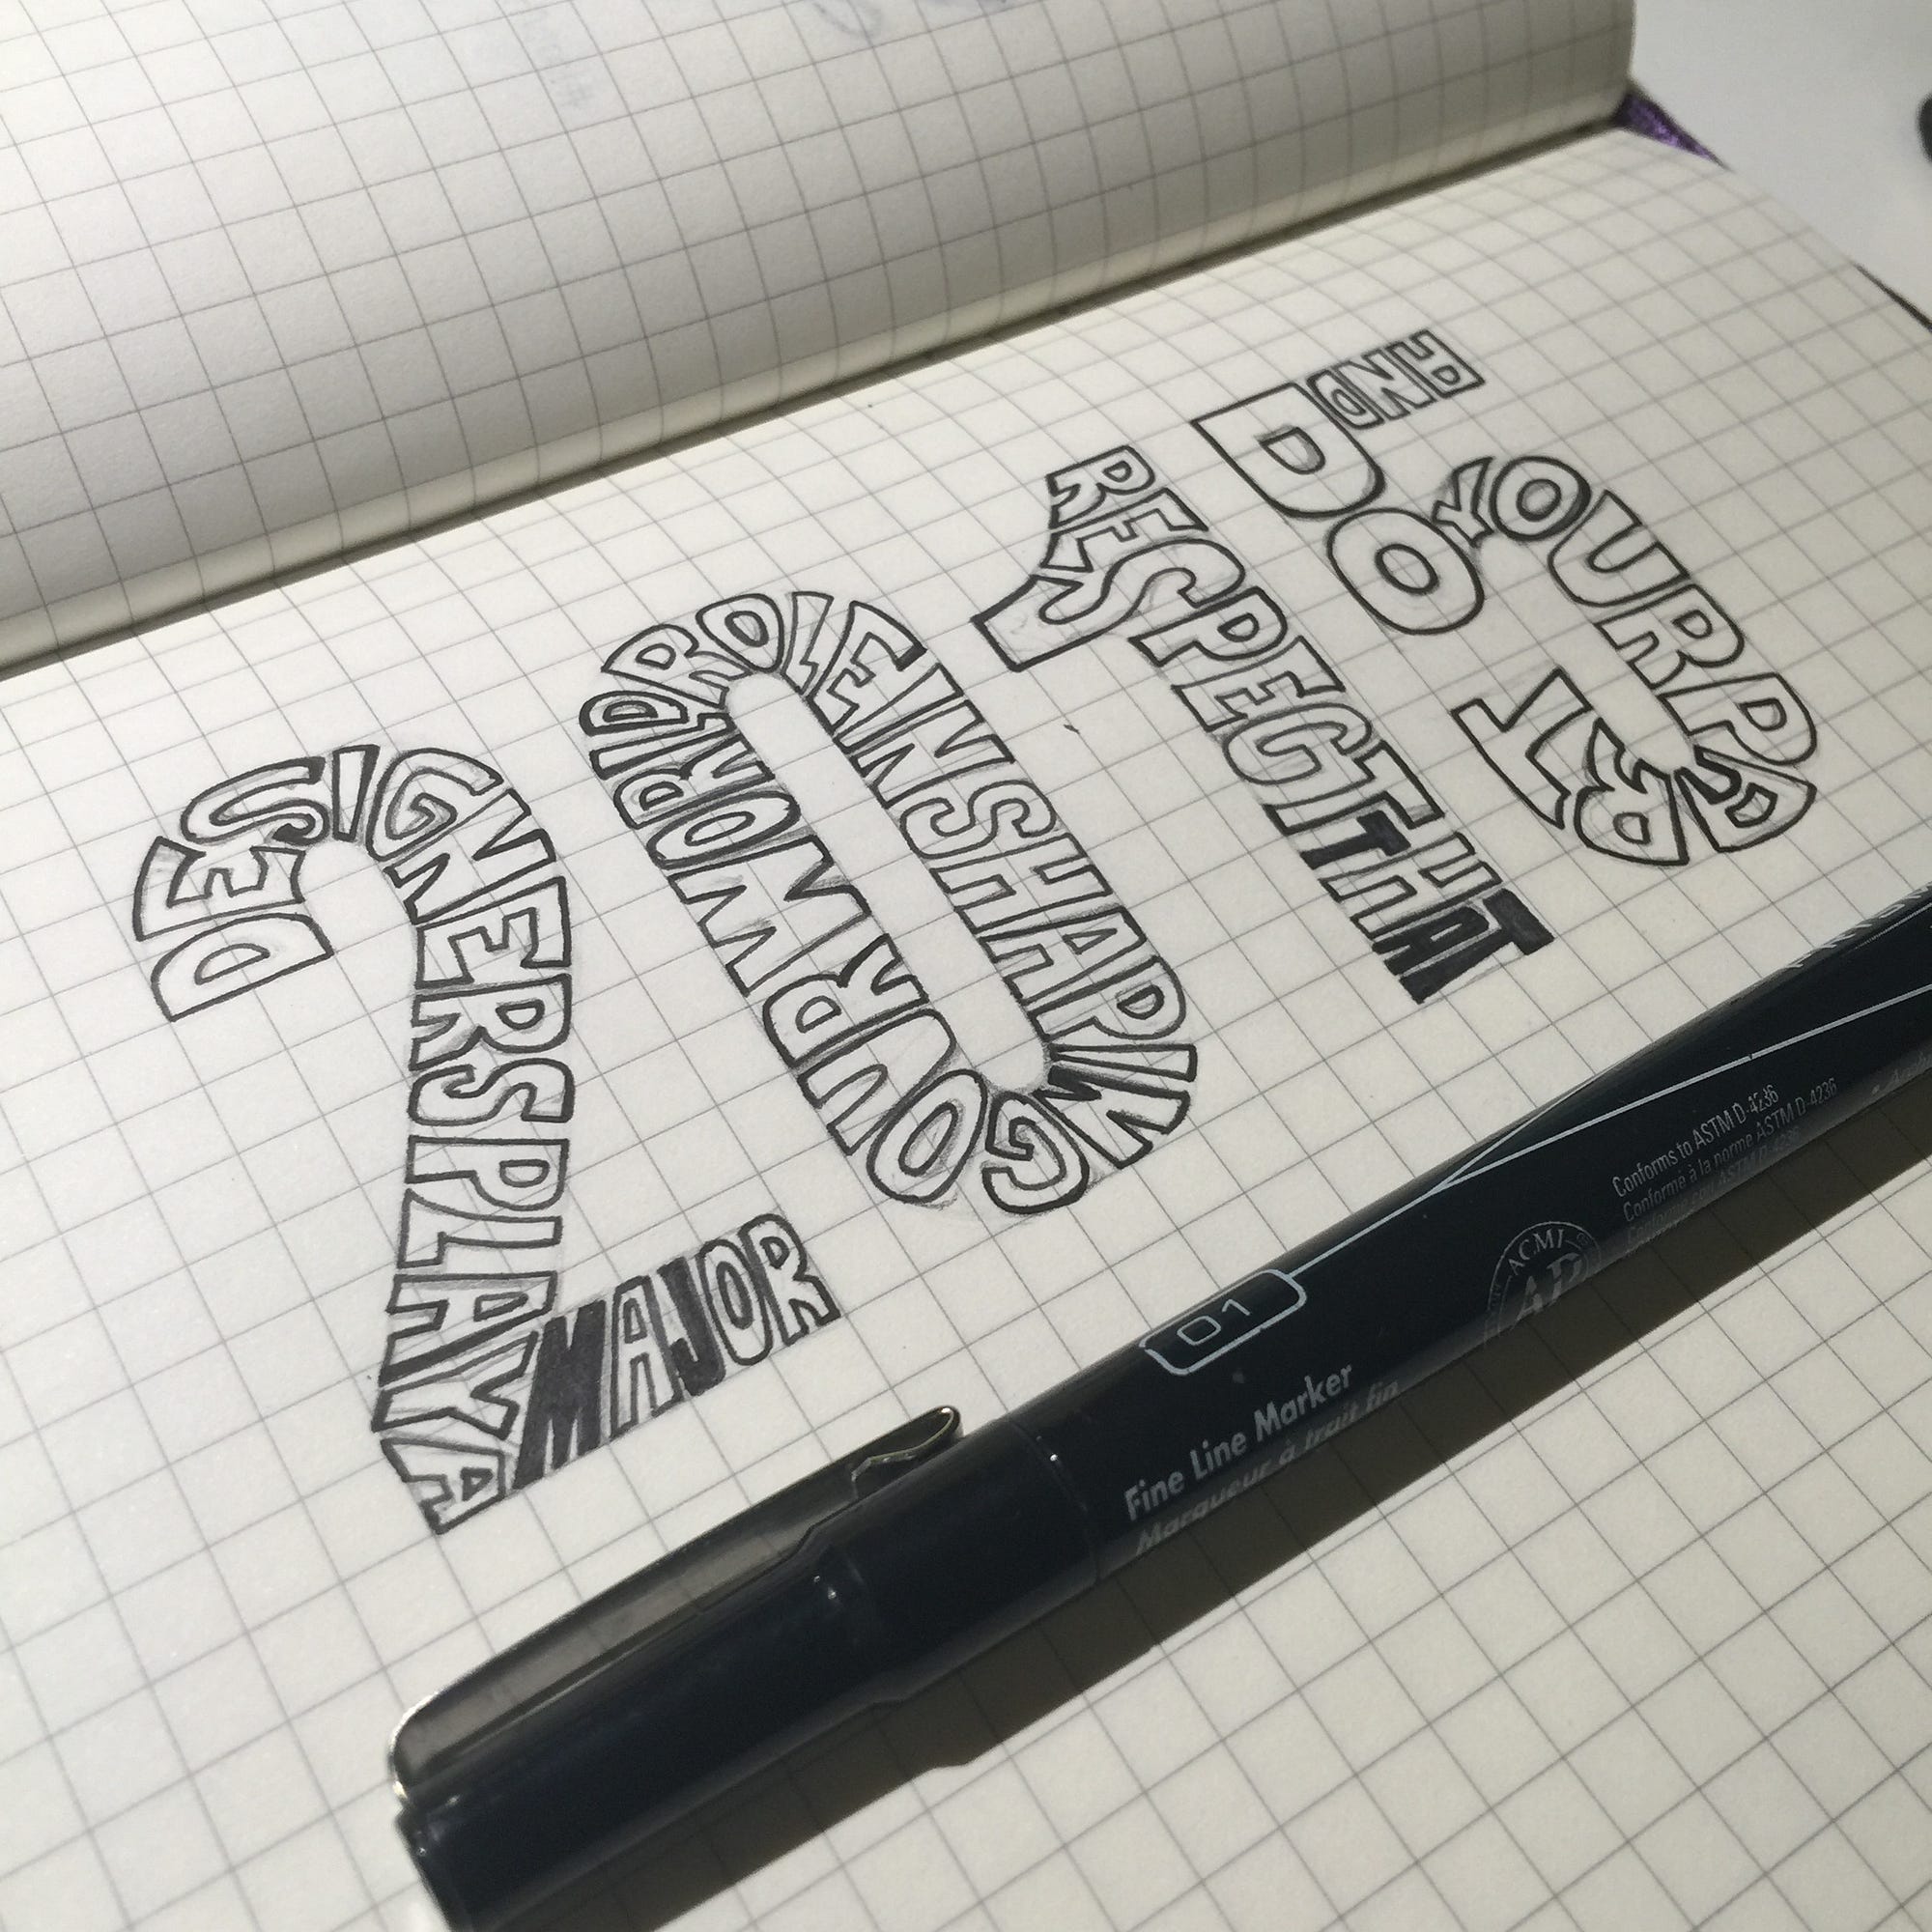 DESIGNERS PLAY A MAJOR
ROLE IN SHAPING OUR WORLD
RESPECT THAT
AND DO YOUR PART
01
Fine Line Marker
Marqueur à trait fin
Conforms to ASTM D-4236
Conforme à la norme ASTM D-4236
ACMI
AP